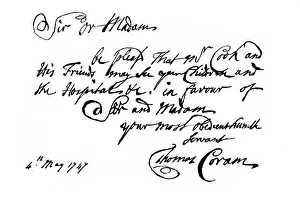 Sir Or Madam
be pleas'd That Mr Cook and
His Friends may see your Children and
the Hospital &c. in favour of
Sir and Madam
your most obedient humble
Servant
Thomas Coram
4th May 1747